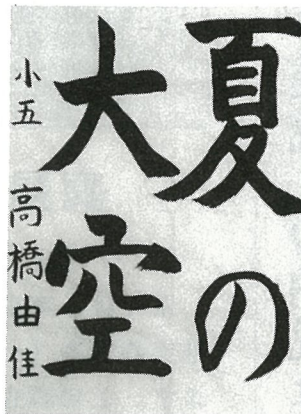 夏の
大空
小五 高橋由佳